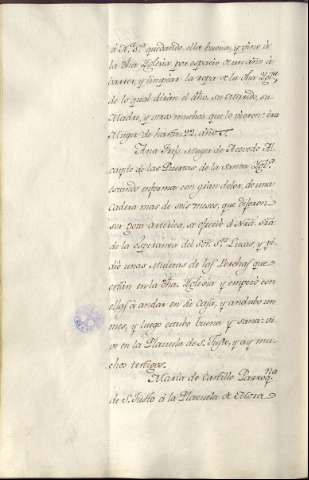 á N.ª S.ª quedando ella buena, y vino á
la dha Yglesia por espacio de un año á
barrer, y limpiar la ropa de la dha Ygl.ª
de lo qual dirán el dho, su Marido, su
Madre, y otros muchos que lo vieron: era
Muger de hasta 22. años.
Ana Ruiz, Muger de Azevedo Al-
cayde de las Puertas de la misma Ygl.ª
estando enferma con gran dolor de una
cadera mas de seis meses, que dijeron
ser gota arterica, se ofreció á Ntrã. Srã
de la Esperanza del Sõr. Sn. Lucas, y pi-
dió unas Muletas de las hechas que
están en la dhã. Yglesia y empezó con
ellas á andar en su casa, y anduvo un
mes, y luego estubo buena y sana: vi-
ve en la Plazuela de S. Juste, y ay mu-
chos testigos.
Maria de Castillo Parroq.na
de S. Justo á la Plazuela de